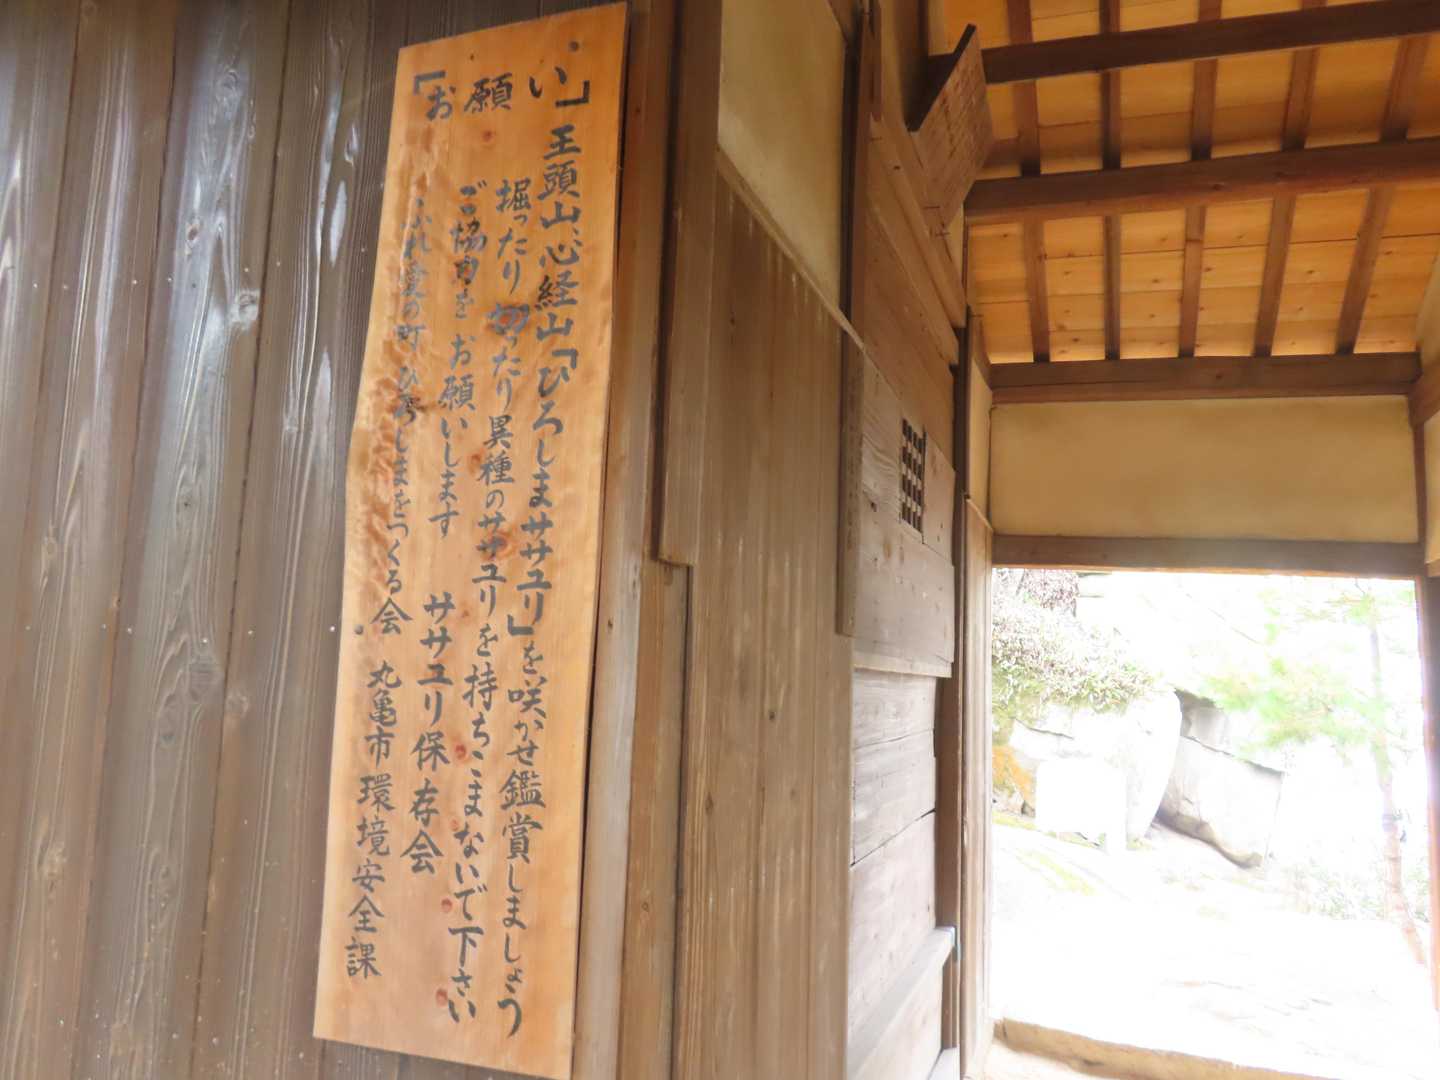 「お願い」
王頭山、心経山「ひろしまササユリ」を咲かせ鑑賞しましょう
掘ったり切ったり異種のササユリを持ちこまないで下さい
ご協力をお願いします
ササユリ保存会
ふれ愛の町ひろしまをつくる会
丸亀市環境安全課